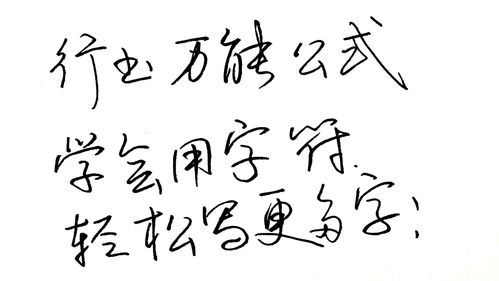 行书万能公式
学会用字符.
轻松写更多字!